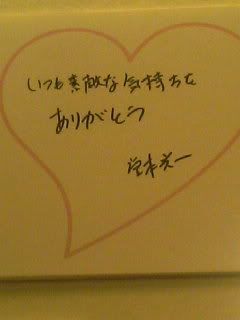 いつも素敵な気持ちを
ありがとう
堂本光一